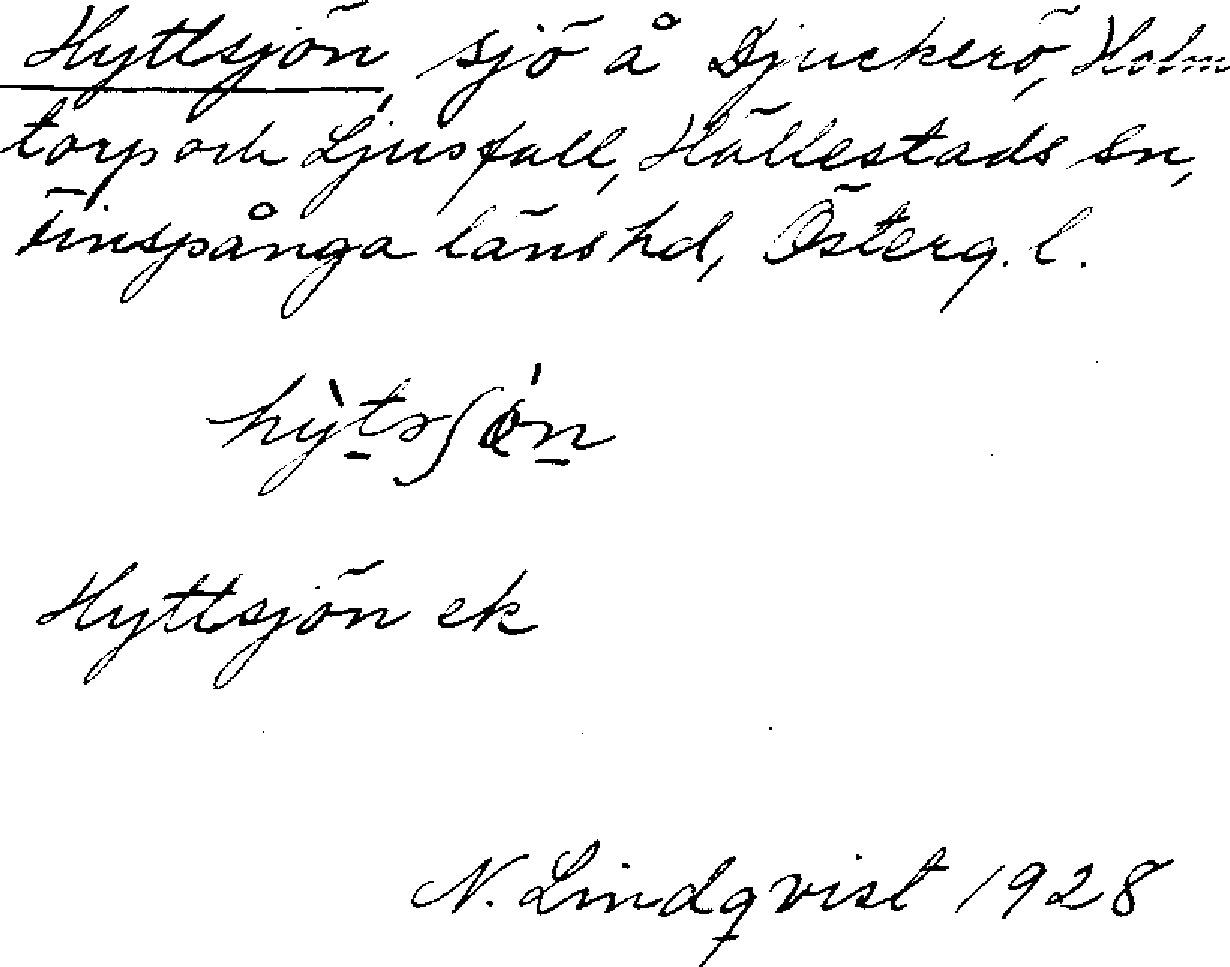 Hyttsjön, sjö å Djuckerö, Holm
torp och Ljusfall, Hällestads sn,
Finspånga läns hd, Österg. l.
Hyttsjön ek
N. Lindqvist 1928